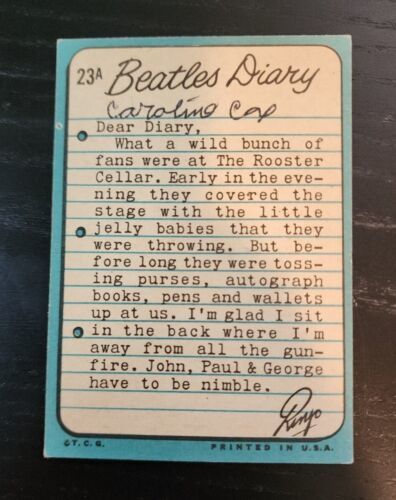 23A Beatles Diary
Caroline Cox
Dear Diary,
What a wild bunch of
fans were at The Rooster
Cellar. Early in the eve-
ning they covered the
stage with the little
jelly babies that they
were throwing. But be-
fore long they were toss-
ing purses, autograph
books, pens and wallets
up at us. I'm glad I sit
in the back where I'm
away from all the gun-
fire. John, Paul & George
have to be nimble.
Ringo
©T.C.G. PRINTED IN U.S.A.